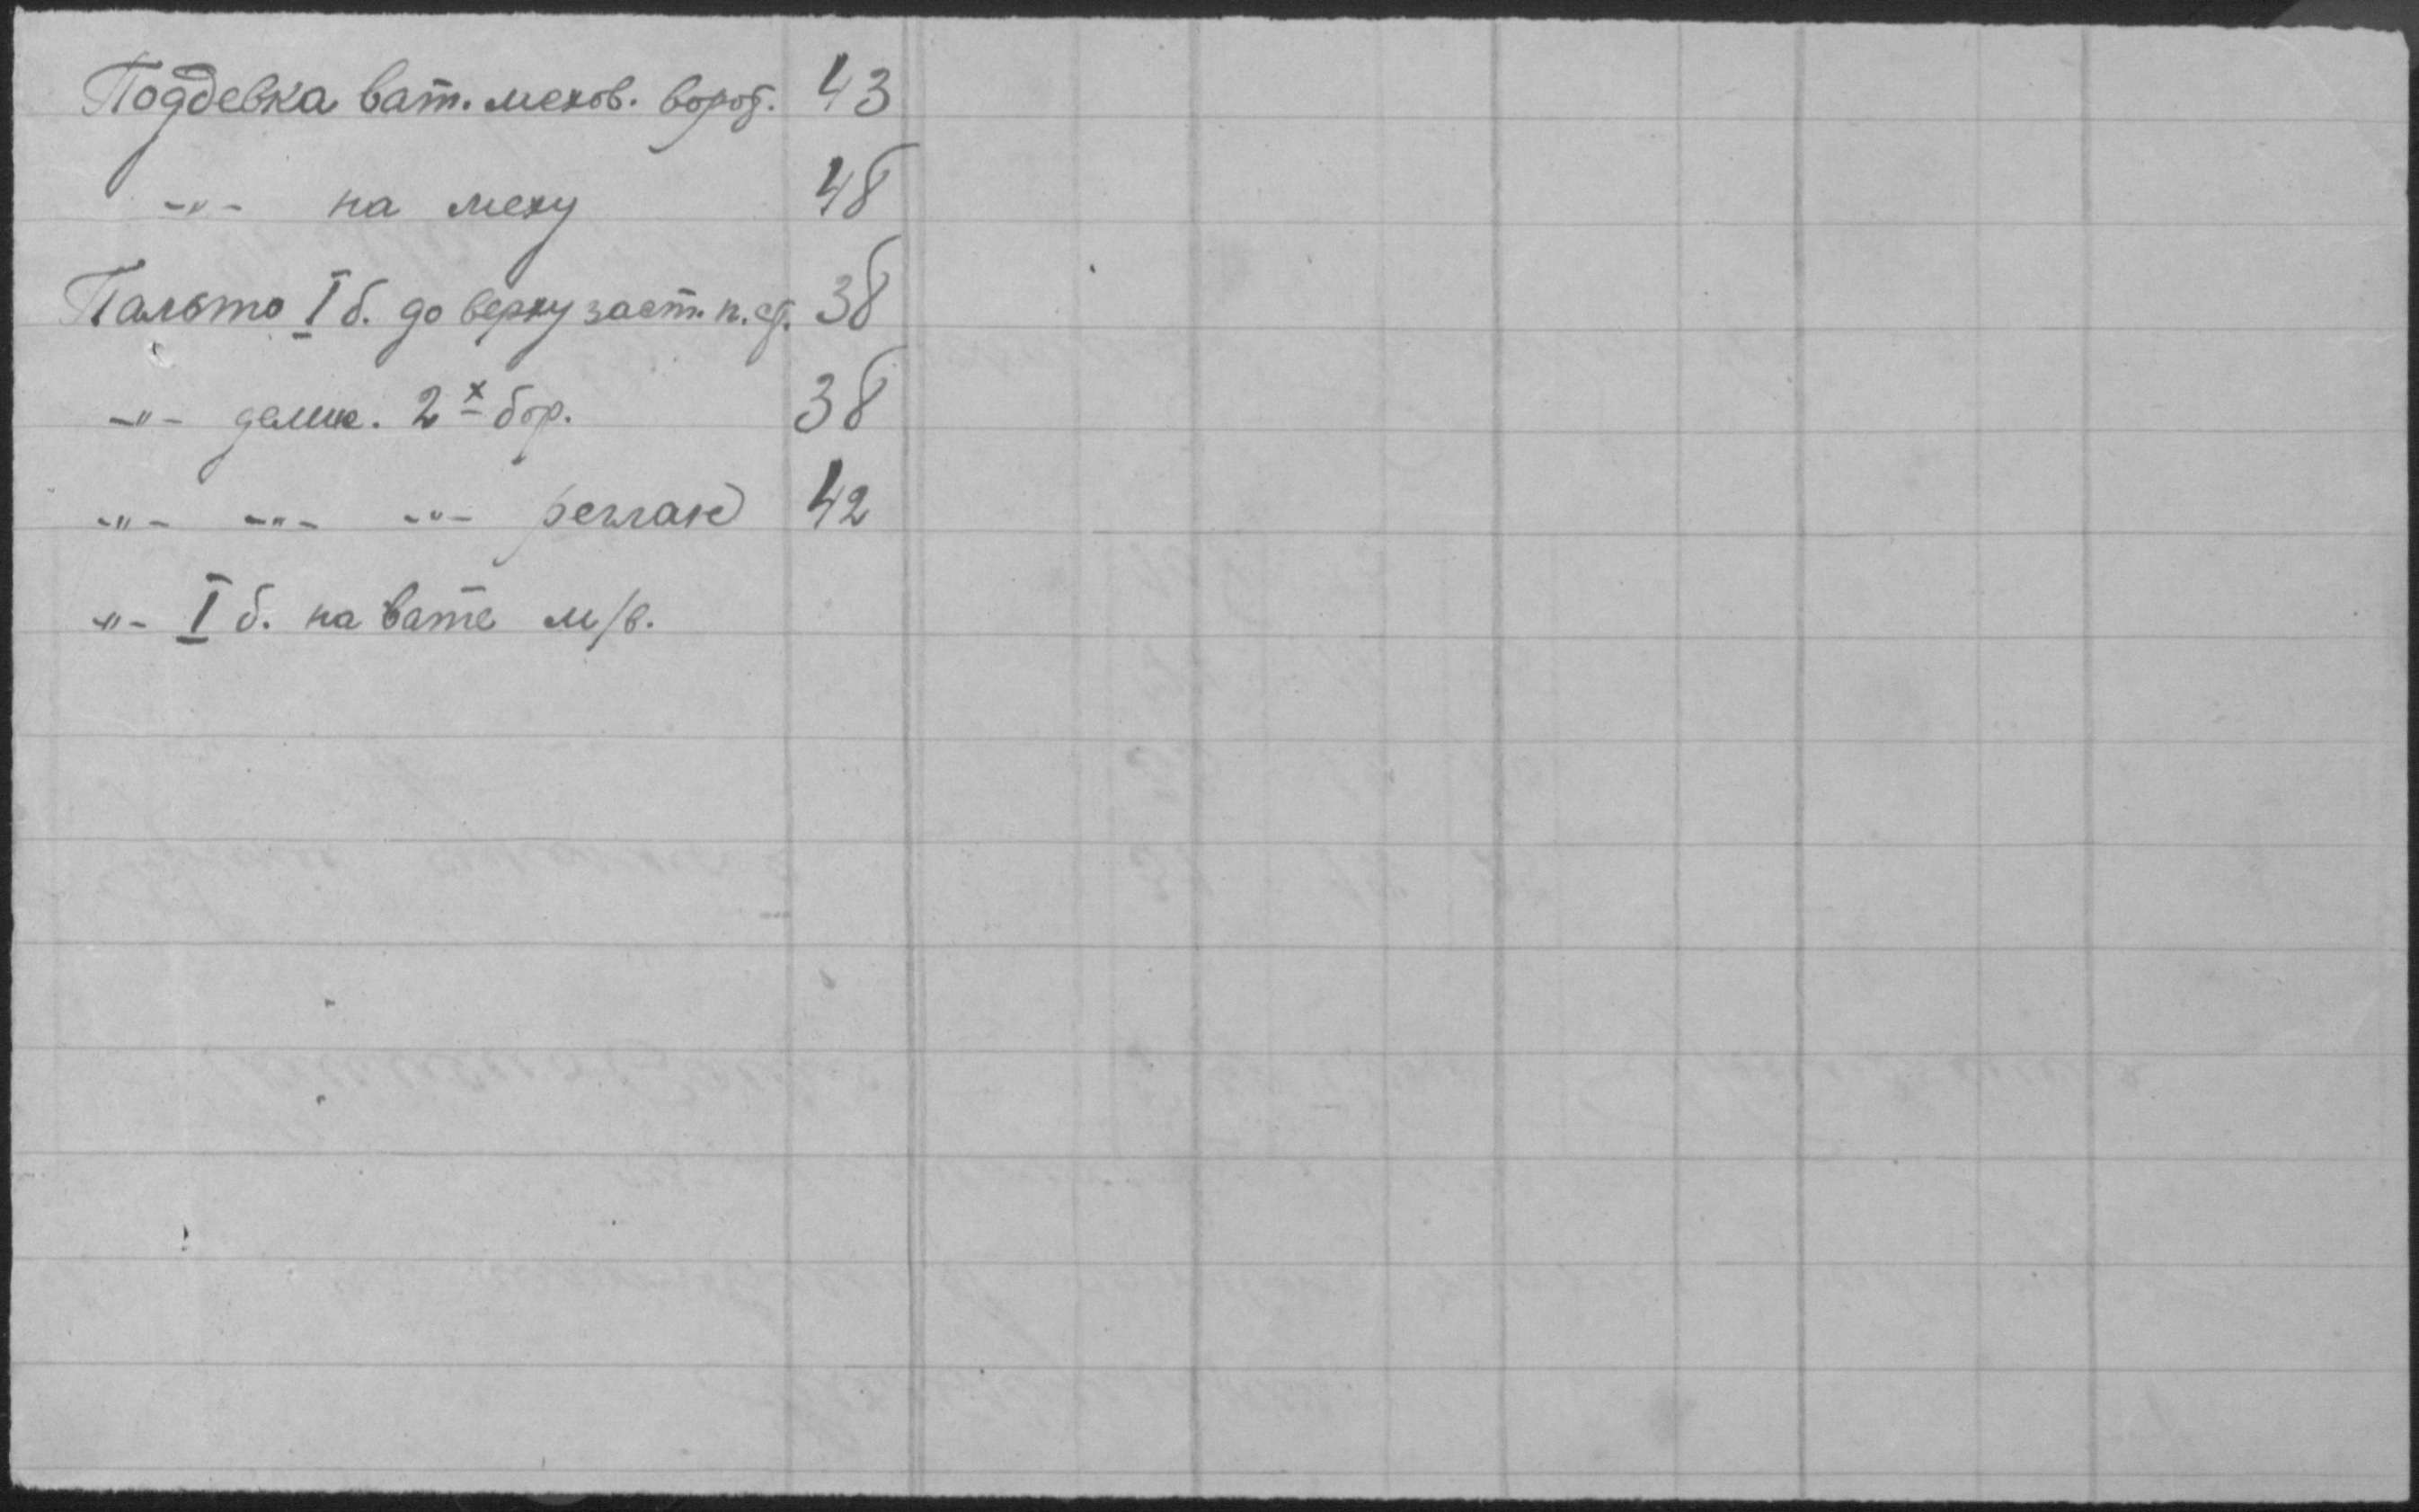 Поддевка ват. мехов. ворот. 43
-"- на меху 48
Пальто I б. до верху заст. п. ср. 38
-"- демис. 2х бор. 38
-"- -"- -"- реглан 42
-"- I б. на вате м/в.